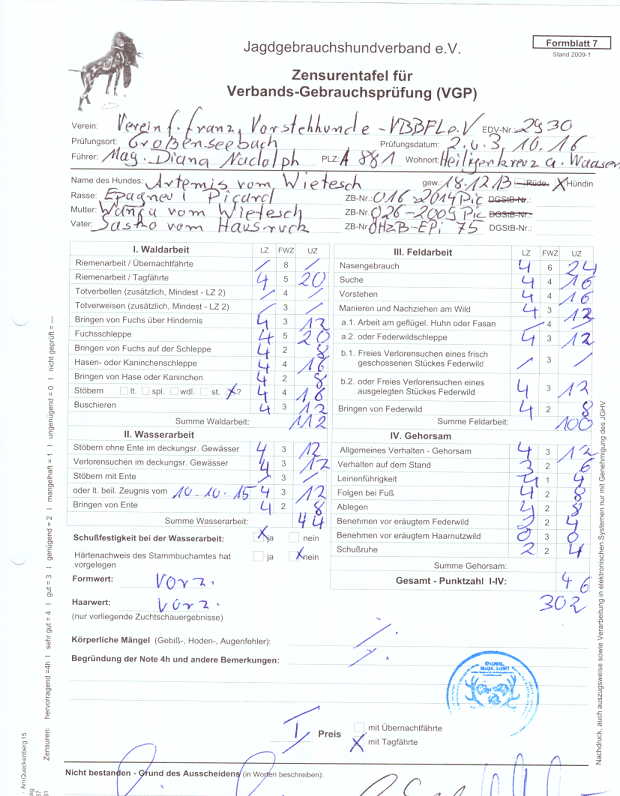 Jagdgebrauchshundverband e.V.
Formblatt 7
Stand 2009-1
Zensurentafel für
Verbands-Gebrauchsprüfung (VGP)
Verein: Verein f. franz. Vorstehhunde - VBBFL e.V EDV-Nr. 2930
Prüfungsort: Großenseebach Prüfungsdatum: 2. u. 3. 10. 16
Führer: Mag. Diana Nudolph PLZ A 881 Wohnort Heiligenkreuz a. Waasen
Name des Hundes: Artemis vom Wietesch gew. 18.12.13 Rüde, X Hündin
Rasse: Epagneul Picard ZB-Nr. 016-2014 Pic DGStB-Nr.
Mutter: Wanja vom Wietesch ZB-Nr. 026-2009 Pic DGStB-Nr.
Vater: Sasko vom Hausruck ZB-Nr. ÖHZB-EPi 75 DGStB-Nr.:
I. Waldarbeit LZ FWZ UZ
Riemenarbeit / Übernachtfährte / 8 /
Riemenarbeit / Tagfährte 4 5 20
Totverbellen (zusätzlich, Mindest - LZ 2) / 4 /
Totverweisen (zusätzlich, Mindest - LZ 2) / 3 /
Bringen von Fuchs über Hindernis 4 3 12
Fuchsschleppe 4 5 20
Bringen von Fuchs auf der Schleppe 4 2 8
Hasen- oder Kaninchenschleppe 4 4 16
Bringen von Hase oder Kaninchen 4 2 8
Stöbern lt. spl. wdl. st. X ? 4 4 16
Buschieren 4 3 12
Summe Waldarbeit: 112
II. Wasserarbeit
Stöbern ohne Ente im deckungsr. Gewässer 4 3 12
Verlorensuchen im deckungsr. Gewässer 4 3 12
Stöbern mit Ente / 3 /
oder lt. beil. Zeugnis vom 10.10.15 4 3 12
Bringen von Ente 4 2 8
Summe Wasserarbeit: 44
Schußfestigkeit bei der Wasserarbeit: X ja nein
Härtenachweis des Stammbuchamtes hat vorgelegen ja X nein
Formwert: vorz.
Haarwert: vorz.
(nur vorliegende Zuchtschauergebnisse)
III. Feldarbeit LZ FWZ UZ
Nasengebrauch 4 6 24
Suche 4 4 16
Vorstehen 4 4 16
Manieren und Nachziehen am Wild 4 3 12
a.1. Arbeit am geflügel. Huhn oder Fasan / 4 /
a.2. oder Federwildschleppe 4 3 12
b.1. Freies Verlorensuchen eines frisch
geschossenen Stückes Federwild / 3 /
b.2. oder Freies Verlorensuchen eines
ausgelegten Stückes Federwild 4 3 12
Bringen von Federwild 4 2 8
Summe Feldarbeit: 100
IV. Gehorsam
Allgemeines Verhalten - Gehorsam 4 3 12
Verhalten auf dem Stand 3 2 6
Leinenführigkeit 4 1 4
Folgen bei Fuß 4 2 8
Ablegen 4 2 8
Benehmen vor eräugtem Federwild 2 2 4
Benehmen vor eräugtem Haarnutzwild 0 3 0
Schußruhe 2 2 4
Summe Gehorsam: 46
Gesamt - Punktzahl I-IV: 302
Körperliche Mängel (Gebiß-, Hoden-, Augenfehler): /.
Begründung der Note 4h und andere Bemerkungen: /.
I Preis mit Übernachtfährte
X mit Tagfährte
Nicht bestanden - Grund des Ausscheidens (in Worten beschreiben):
Zensuren: hervorragend =4h I sehr gut = 4 I gut = 3 I genügend = 2 I mangelhaft = 1 I ungenügend = 0 I nicht geprüft = —
Nachdruck, auch auszugsweise sowie Verarbeitung in elektronischen Systemen nur mit Genehmigung des JGHV